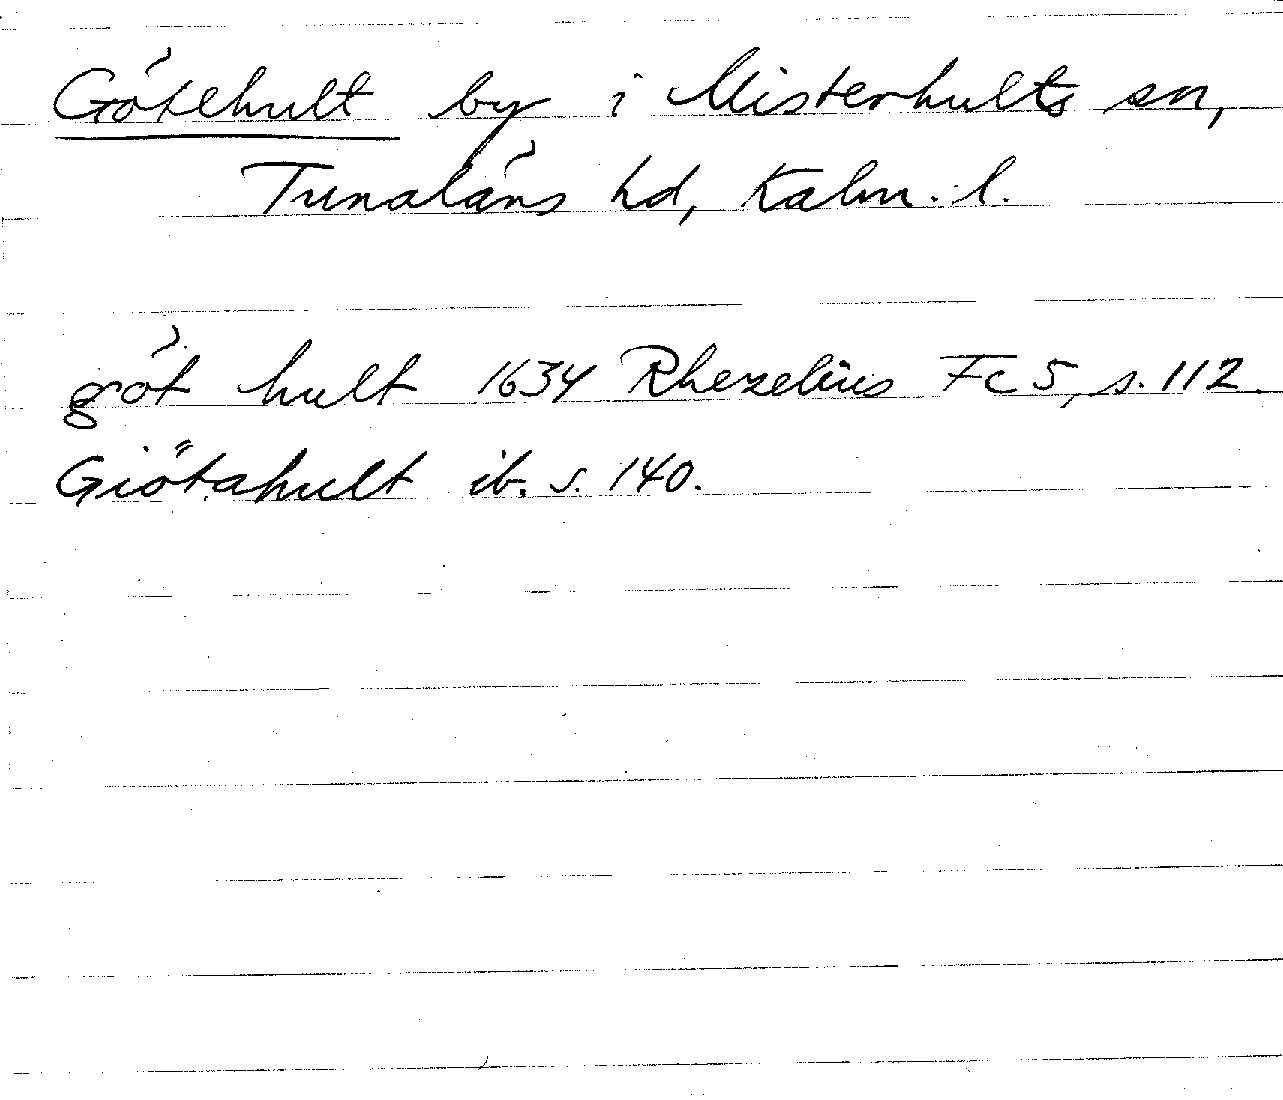 Götehult by i Misterhults sn,
Tunaläns hd, Kalm. l.
göt hult 1634 Rhezelius Fc 5, s. 112.
Giötahult ib. s. 140.